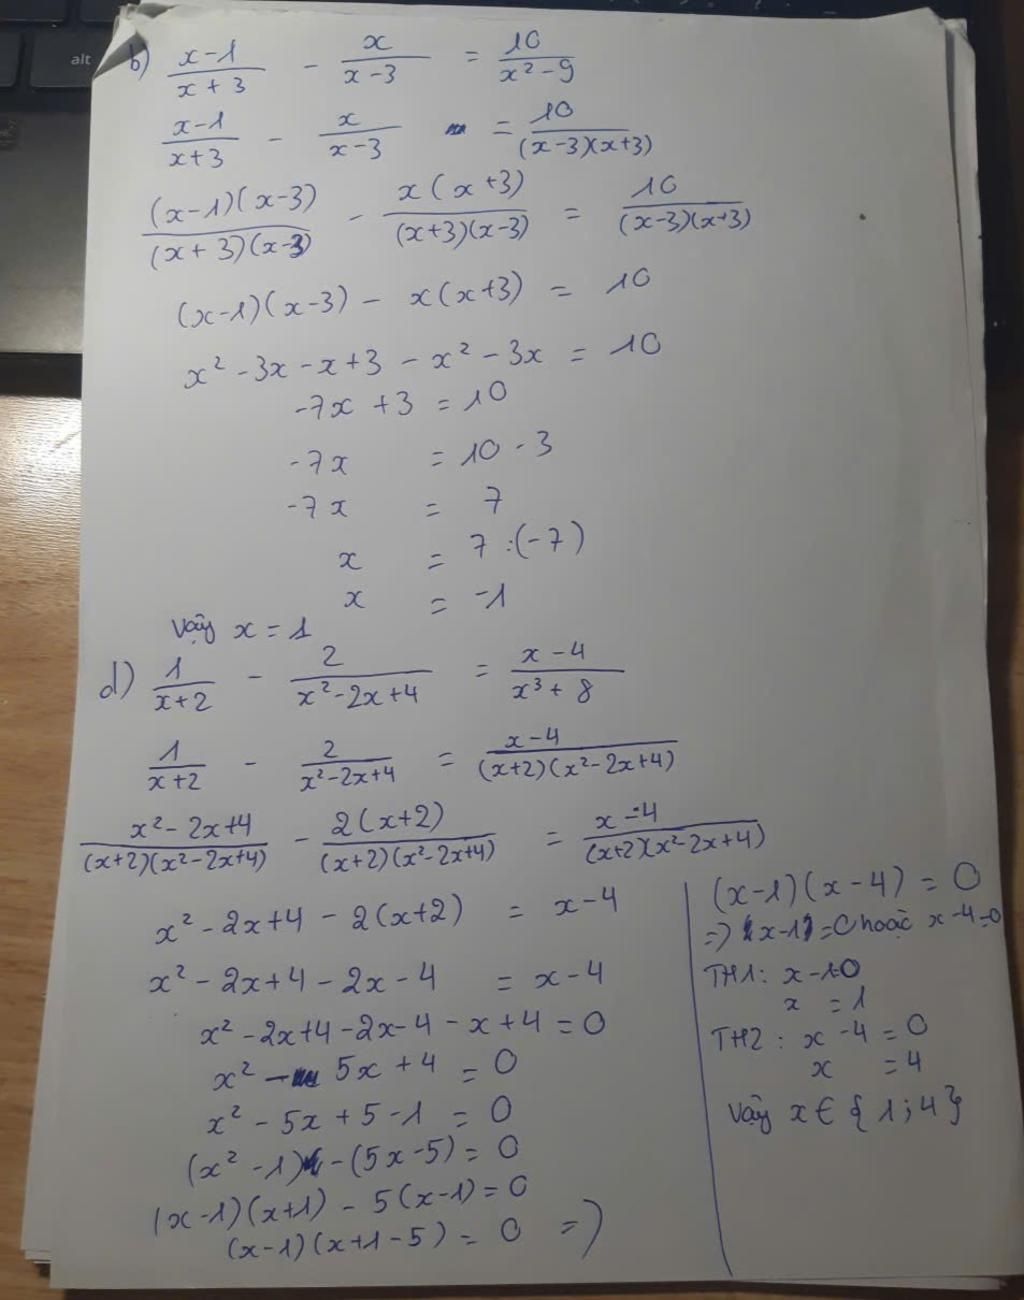 alt
b) \frac{x-1}{x+3} - \frac{x}{x-3} = \frac{10}{x²-9}
\frac{x-1}{x+3} - \frac{x}{x-3} = \frac{10}{(x-3)(x+3)}
\frac{(x-1)(x-3)}{(x+3)(x-3)} - \frac{x(x+3)}{(x+3)(x-3)} = \frac{10}{(x-3)(x+3)}
(x-1)(x-3) - x(x+3) = 10
x² - 3x - x + 3 - x² - 3x = 10
-7x + 3 = 10
-7x = 10 - 3
-7x = 7
x = 7 : (-7)
x = -1
Vậy x = 1
d) \frac{1}{x+2} - \frac{2}{x²-2x+4} = \frac{x-4}{x³+8}
\frac{1}{x+2} - \frac{2}{x²-2x+4} = \frac{x-4}{(x+2)(x²-2x+4)}
\frac{x²-2x+4}{(x+2)(x²-2x+4)} - \frac{2(x+2)}{(x+2)(x²-2x+4)} = \frac{x-4}{(x+2)(x²-2x+4)}
x² - 2x + 4 - 2(x+2) = x - 4
x² - 2x + 4 - 2x - 4 = x - 4
x² - 2x + 4 - 2x - 4 - x + 4 = 0
x² - 5x + 4 = 0
x² - 5x + 5 - 1 = 0
(x² - 1) - (5x - 5) = 0
(x-1)(x+1) - 5(x-1) = 0
(x-1)(x+1-5) = 0 =>
(x-1)(x-4) = 0
=> x-1 = 0 hoặc x-4=0
TH1: x-1=0
x = 1
TH2: x-4 = 0
x = 4
Vậy x ∈ {1; 4}